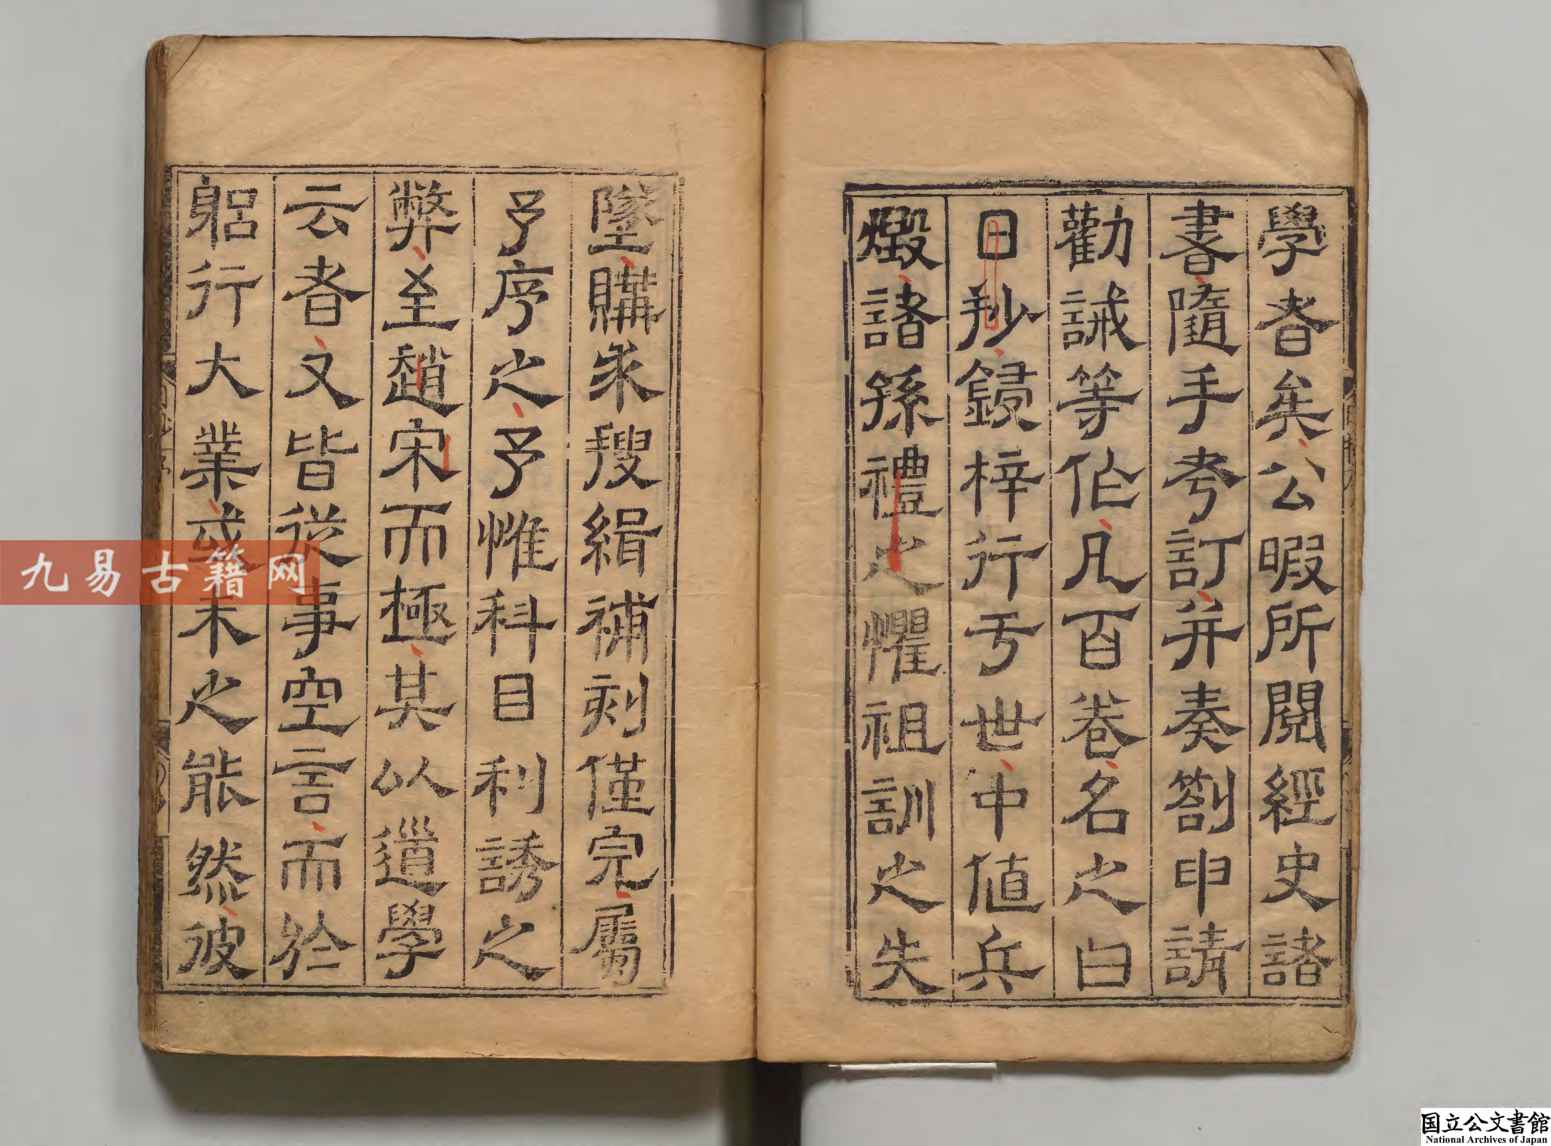 學者矣公暇所閱經史諸
書隨手考訂并奏劄申請
勸誡等作凡百卷名之曰
日抄鋟梓行于世中値兵
燬諸孫禮之懼祖訓之失
墜購求搜緝補刻僅完屬
予序之予惟科目利誘之
弊至趙宋而極其以道學
云者又皆從事空言而於
躬行大業或未之能然彼
九易古籍网
国立公文書館
National Archives of Japan